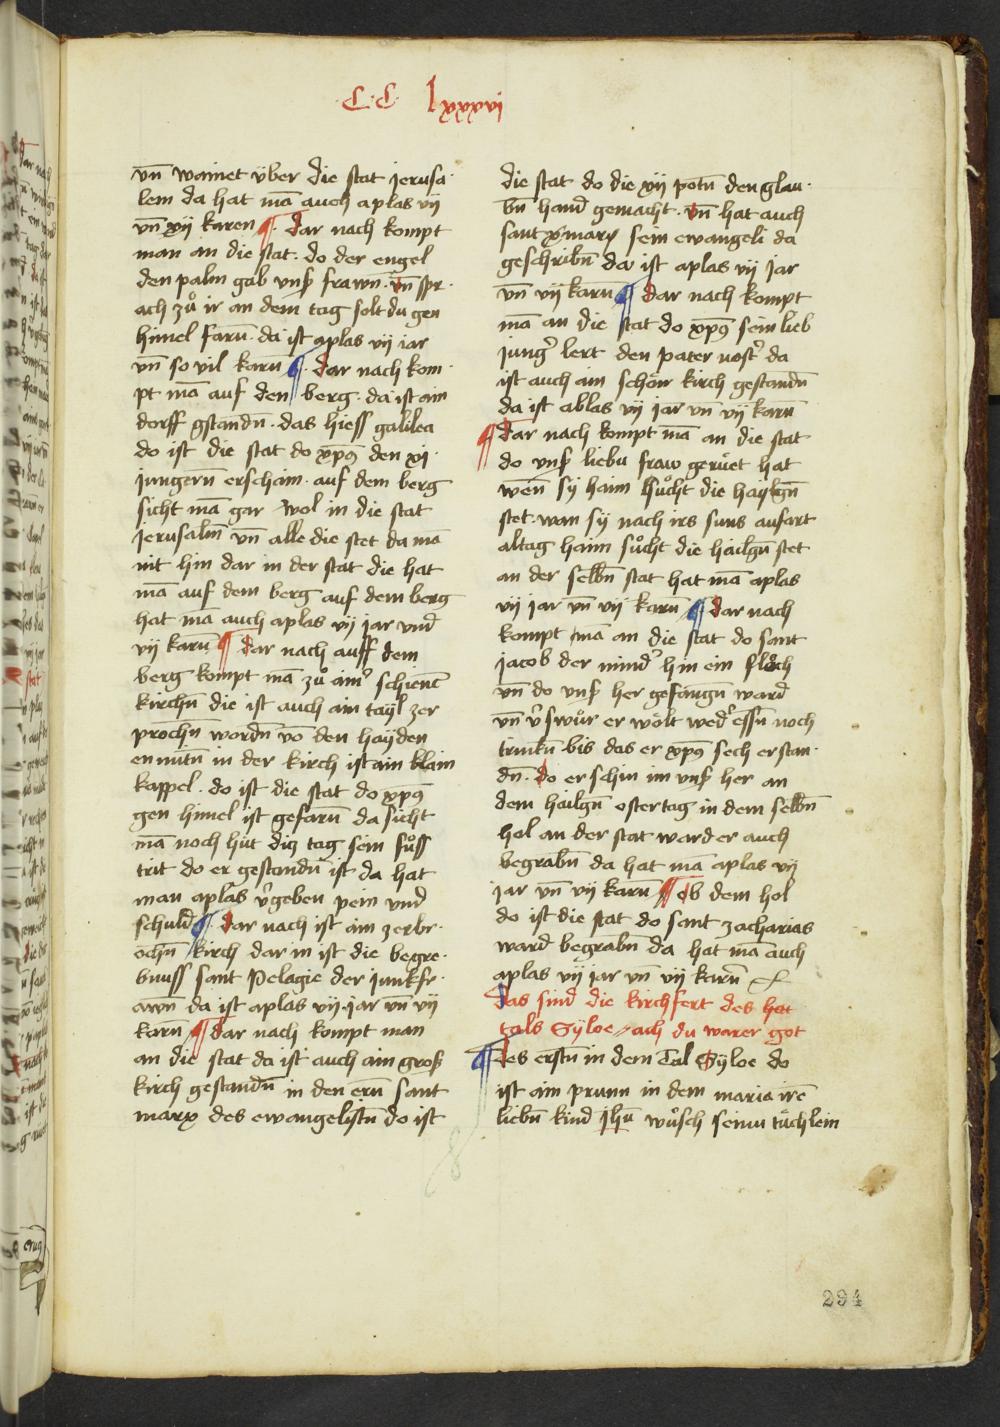 C·C· lxxxvj
vn̄ wainet v̈ber die stat jerusa·
lem da hat mā auch aplas vij
vn̄ vij karen ¶· dar nach kompt
man an die stat· do der engel
den palm gab vnß frawn̄· vn̄ spr·
ach zů ir an dem tag solt du gen
himel farn̄· da ist aplas vij iar
vn̄ so vil karn̄ ¶· dar nach kom·
pt mā auf den berg· da ist ain
dorff gstandn̄· das hiess galilea
do ist die stat do xp̄s den xj·
jungern̄ erschain· auf dem berg
sicht mā gar wol in die stat
jerusalm̄ vn̄ alle die stet da mā
nit hin dar in der stat die hat
mā auf dem berg auf dem berg
hat mā auch aplas vij jar vnd
vij karn̄ ¶ dar nach auff dem
berg kompt mā zů aim̄ schienē
kirchn̄ die ist auch ain tayl zer
prochn̄ wordn̄ vō den hayden
en mittn̄ in der kirch ist ain klain
kappel· do ist die stat do xp̄s
gen himel ist gefarn̄ da sicht
mā noch hüt diz tag sein fůss
trit do er gestandn̄ ist da hat
man aplas v̄geben pein vnd
schuld ¶· dar nach ist ain zerbr·
ochn̄ kirch dar in ist die begre·
bnuss sant Pelagie der junkfr·
awn̄ da ist aplas vij·jar vn̄ vij
karn̄ ¶ dar nach kompt man
an die stat da ist auch ain groß
kirch gestandn̄ in den ern̄ sant
marx des ewangelistn̄ do ist
die stat do die xij potn̄ den glau·
bn̄ hand gemacht· vn̄ hat auch
sant marx sein ewangeli da
geschribn̄ da ist aplas vij jar
vn̄ vij karn̄ ¶ dar nach kompt
mā an die stat do xp̄s sein lieb
jung̉ lert den pater nost̉ da
ist auch ain schön̄ kirch gestandn̄
da ist ablas vij jar vn̄ vij karn̄
¶ dar nach kompt mā an die stat
do vnß liebu fraw gerüet hat
wen̄ sy haim sůcht die haylgn̄
stet· wan sy nach irs suns aufart
altag haim sůcht die hailgn̄ stet
an der selbn̄ stat hat mā aplas
vij jar vn̄ vij karn̄ ¶ dar nach
kompt mā an die stat do sant
jacob der mind̉ hin ein flŏch
vn̄ do vnß her gefangn̄ ward
vn̄ v̉swůr er wölt wed̉ essn̄ noch
trinkn̄ bis das er xp̄s sech erstan·
dn̄· do erschin im vnß her an
dem hailgn̄ ostertag in dem selbn̄
hol an der stat ward er auch
begrabn̄ da hat mā aplas vij
jar vn̄ vij karn̄ ¶ ob dem hol
do ist die stat do sant zacharias
ward begrabn̄ da hat mā auch
aplas vij jar vn̄ vij karn̄
Das sind die kirchfert des hat
tals Syloe ach du warer got
¶ Des erstn̄ in dem Tal Syloe do
ist ain prunn in dem maria irē
liebn̄ kind ih̄u wůsch seinu tüchlein
294